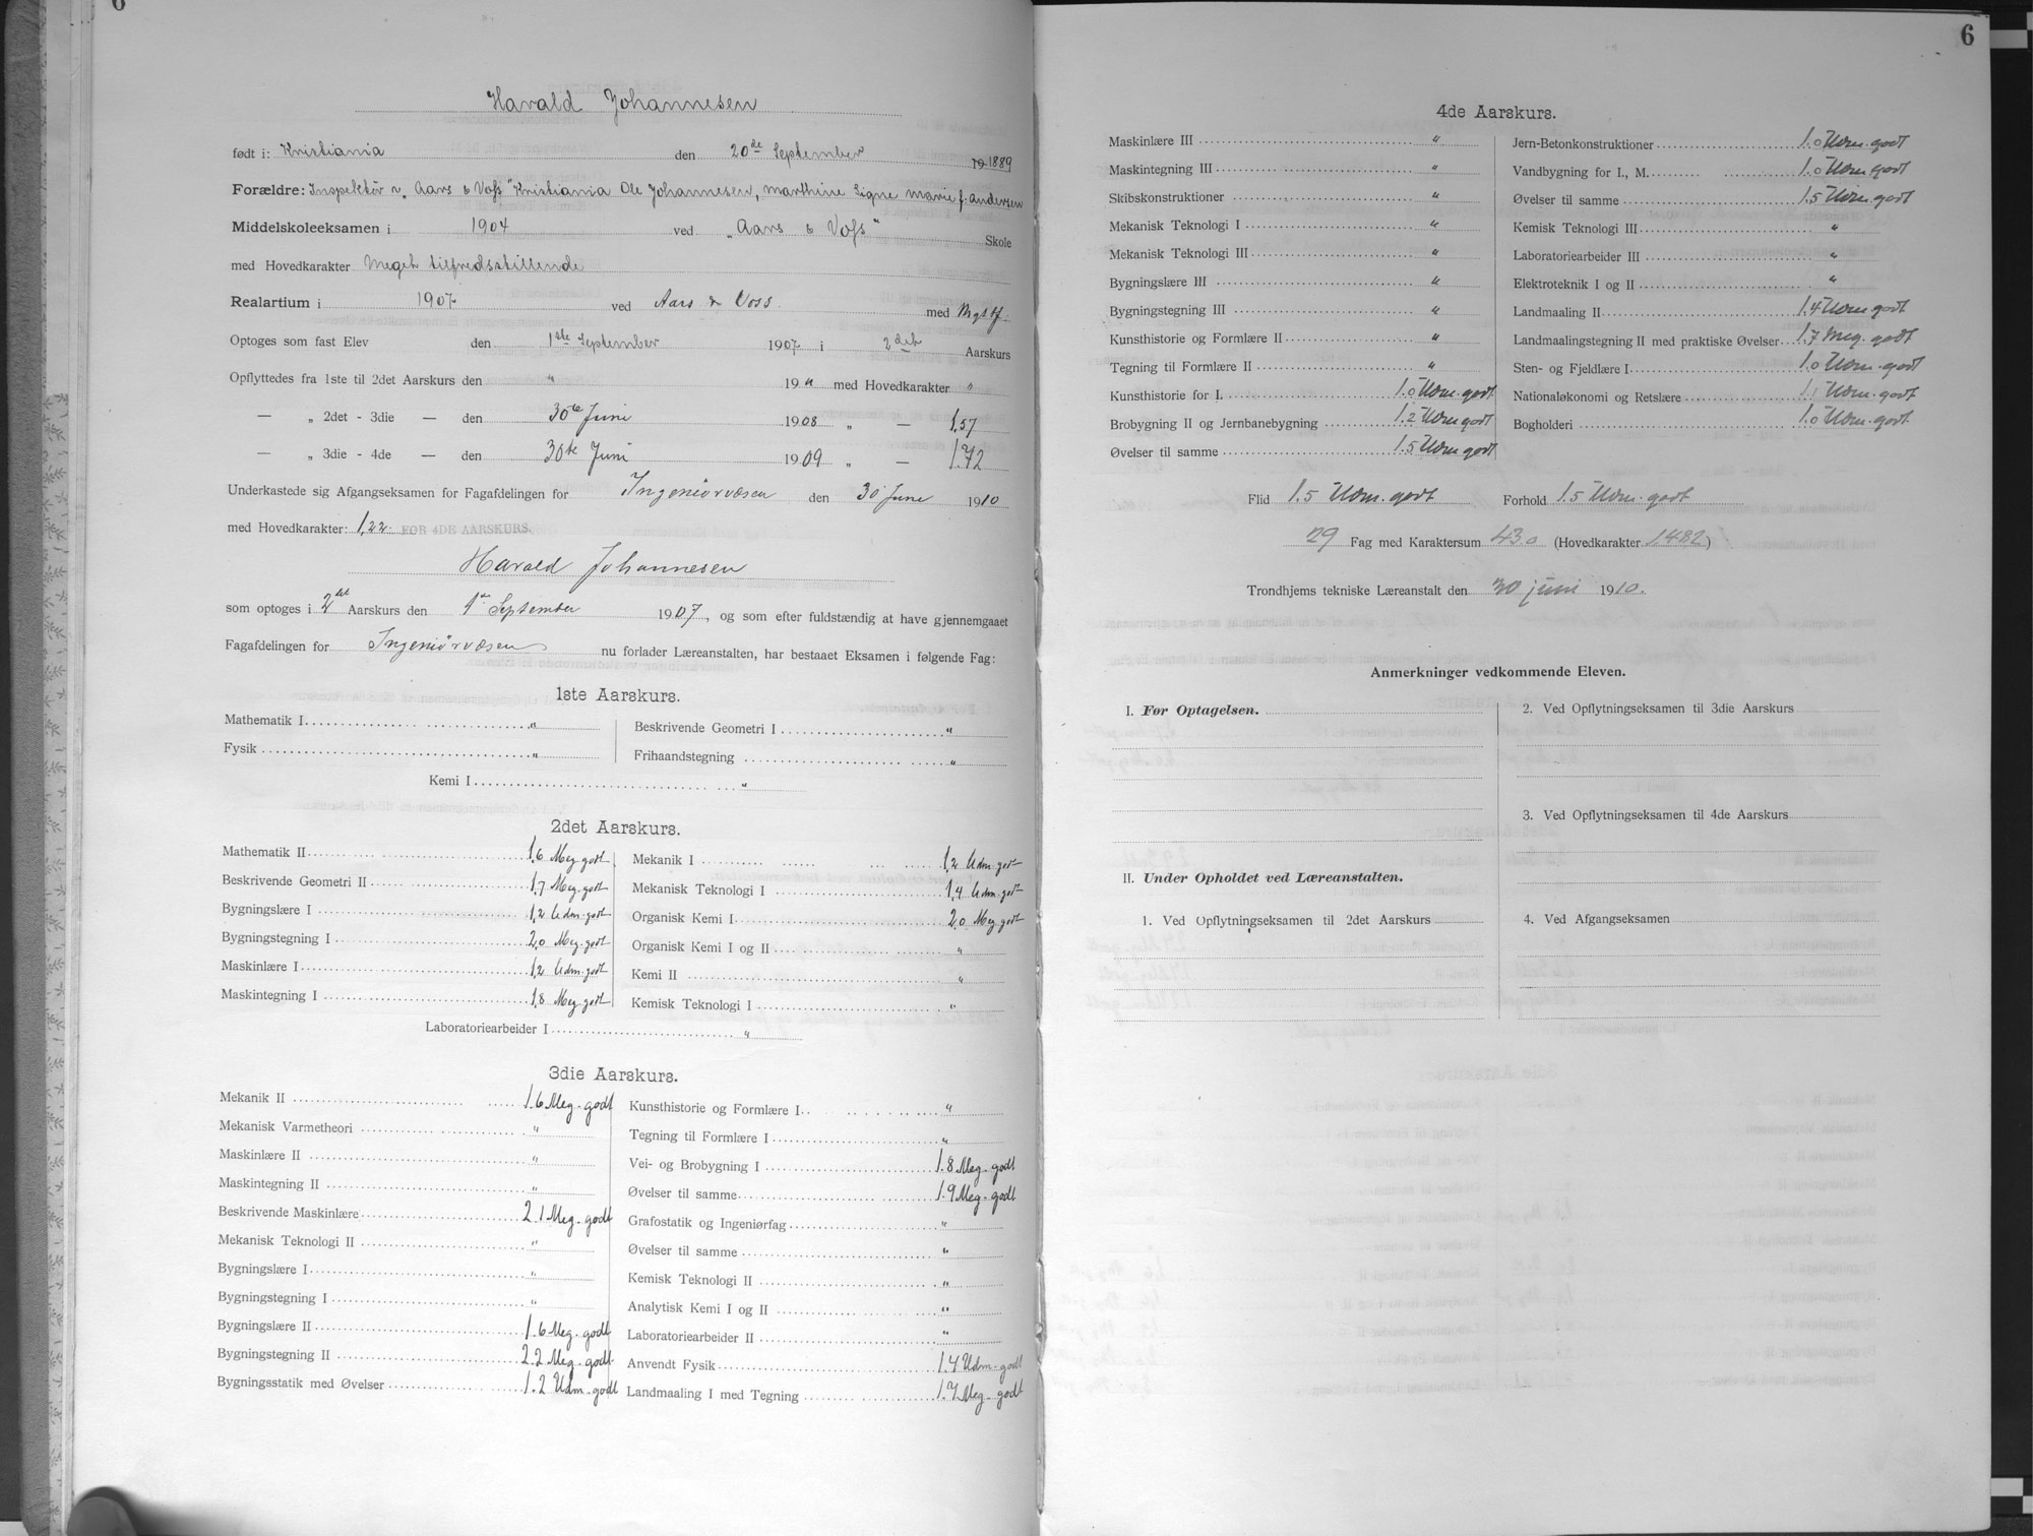 6
Harald Johannesen
født i: Kristiania den 20de September 19 1889
Forældre: Inspektör v. „Aars & Voss" Kristiania Ole Johannesen, Marthine Signe Marie f. Andersen
Middelskoleeksamen i 1904 ved „Aars & Voss" Skole
med Hovedkarakter Meget tilfredsstillende
Realartium i 1907 ved Aars & Voss. med Mgtf.
Optoges som fast Elev den 1ste September 1907 i 2det Aarskurs
Opflyttedes fra 1ste til 2det Aarskurs den " 19 " med Hovedkarakter "
— „ 2det - 3die — den 30te Juni 1908 „ — 1,57
— „ 3die - 4de — den 30te Juni 1909 „ — 1.72
Underkastede sig Afgangseksamen for Fagafdelingen for Ingeniørvæsen den 30 June 1910
med Hovedkarakter: 1,22 FOR 4DE AARSKURS.
Harald Johannesen
som optoges i 2det Aarskurs den 1ste September 1907, og som efter fuldstændig at have gjennemgaaet
Fagafdelingen for Ingeniörvæsen nu forlader Læreanstalten, har bestaaet Eksamen i følgende Fag:
1ste Aarskurs.
Mathematik I "
Fysik "
Beskrivende Geometri I "
Frihaandstegning "
Kemi I "
2det Aarskurs.
Mathematik II 1,6 Meg. godt
Beskrivende Geometri II 1,7 Meg. godt
Bygningslære I 1,2 Udm. godt
Bygningstegning I 2,0 Meg. godt
Maskinlære I 1,2 Udm. godt
Maskintegning I 1,8 Meg. godt
Mekanik I 1,2 Udm. godt
Mekanisk Teknologi I 1,4 Udm. godt
Organisk Kemi I 2,0 Meg. godt
Organisk Kemi I og II "
Kemi II "
Kemisk Teknologi I "
Laboratoriearbeider I "
3die Aarskurs.
Mekanik II 1.6 Meg. godt
Mekanisk Varmetheori "
Maskinlære II "
Maskintegning II "
Beskrivende Maskinlære 2.1 Meg. godt
Mekanisk Teknologi II "
Bygningslære I "
Bygningstegning I "
Bygningslære II 1.6 Meg. godt
Bygningstegning II 2.2 Meg. godt.
Bygningsstatik med Øvelser 1.2 Udm. godt
Kunsthistorie og Formlære I "
Tegning til Formlære I "
Vei- og Brobygning I 1.8 Meg. godt
Øvelser til samme 1.9 Meg. godt
Grafostatik og Ingeniørfag "
Øvelser til samme "
Kemisk Teknologi II "
Analytisk Kemi I og II "
Laboratoriearbeider II "
Anvendt Fysik 1.4 Udm. godt
Landmaaling I med Tegning 1.7 Meg. godt
6
4de Aarskurs.
Maskinlære III "
Maskintegning III "
Skibskonstruktioner "
Mekanisk Teknologi I "
Mekanisk Teknologi III "
Bygningslære III "
Bygningstegning III "
Kunsthistorie og Formlære II "
Tegning til Formlære II "
Kunsthistorie for I. 1.0 Udm. godt
Brobygning II og Jernbanebygning 1.2 Udm godt
Øvelser til samme 1.5 Udm godt
Jern-Betonkonstruktioner 1.0 Udm. godt
Vandbygning for I., M. 1.0 Udm godt
Øvelser til samme 1.5 Udm. godt
Kemisk Teknologi III "
Laboratoriearbeider III "
Elektroteknik I og II "
Landmaaling II 1.4 Udm godt
Landmaalingstegning II med praktiske Øvelser 1.7 Meg. godt
Sten- og Fjeldlære I 1.0 Udm. godt
Nationaløkonomi og Retslære 1.1 Udm. godt
Bogholderi 1.0 Udm. godt.
Flid 1.5 Udm. godt Forhold 1.5 Udm. godt
29 Fag med Karaktersum 43.0 (Hovedkarakter 1.482)
Trondhjems tekniske Læreanstalt den 30 juni 1910.
Anmerkninger vedkommende Eleven.
I. Før Optagelsen.
II. Under Opholdet ved Læreanstalten.
1. Ved Opflytningseksamen til 2det Aarskurs
2. Ved Opflytningseksamen til 3die Aarskurs
3. Ved Opflytningseksamen til 4de Aarskurs
4. Ved Afgangseksamen